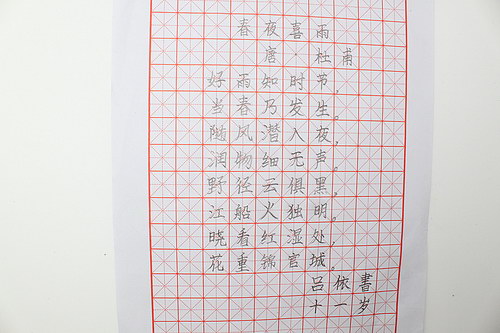 春夜喜雨
唐·杜甫
好雨知时节，
当春乃发生。
随风潜入夜，
润物细无声。
野径云俱黑，
江船火独明。
晓看红湿处，
花重锦官城。
吕依書
十一岁